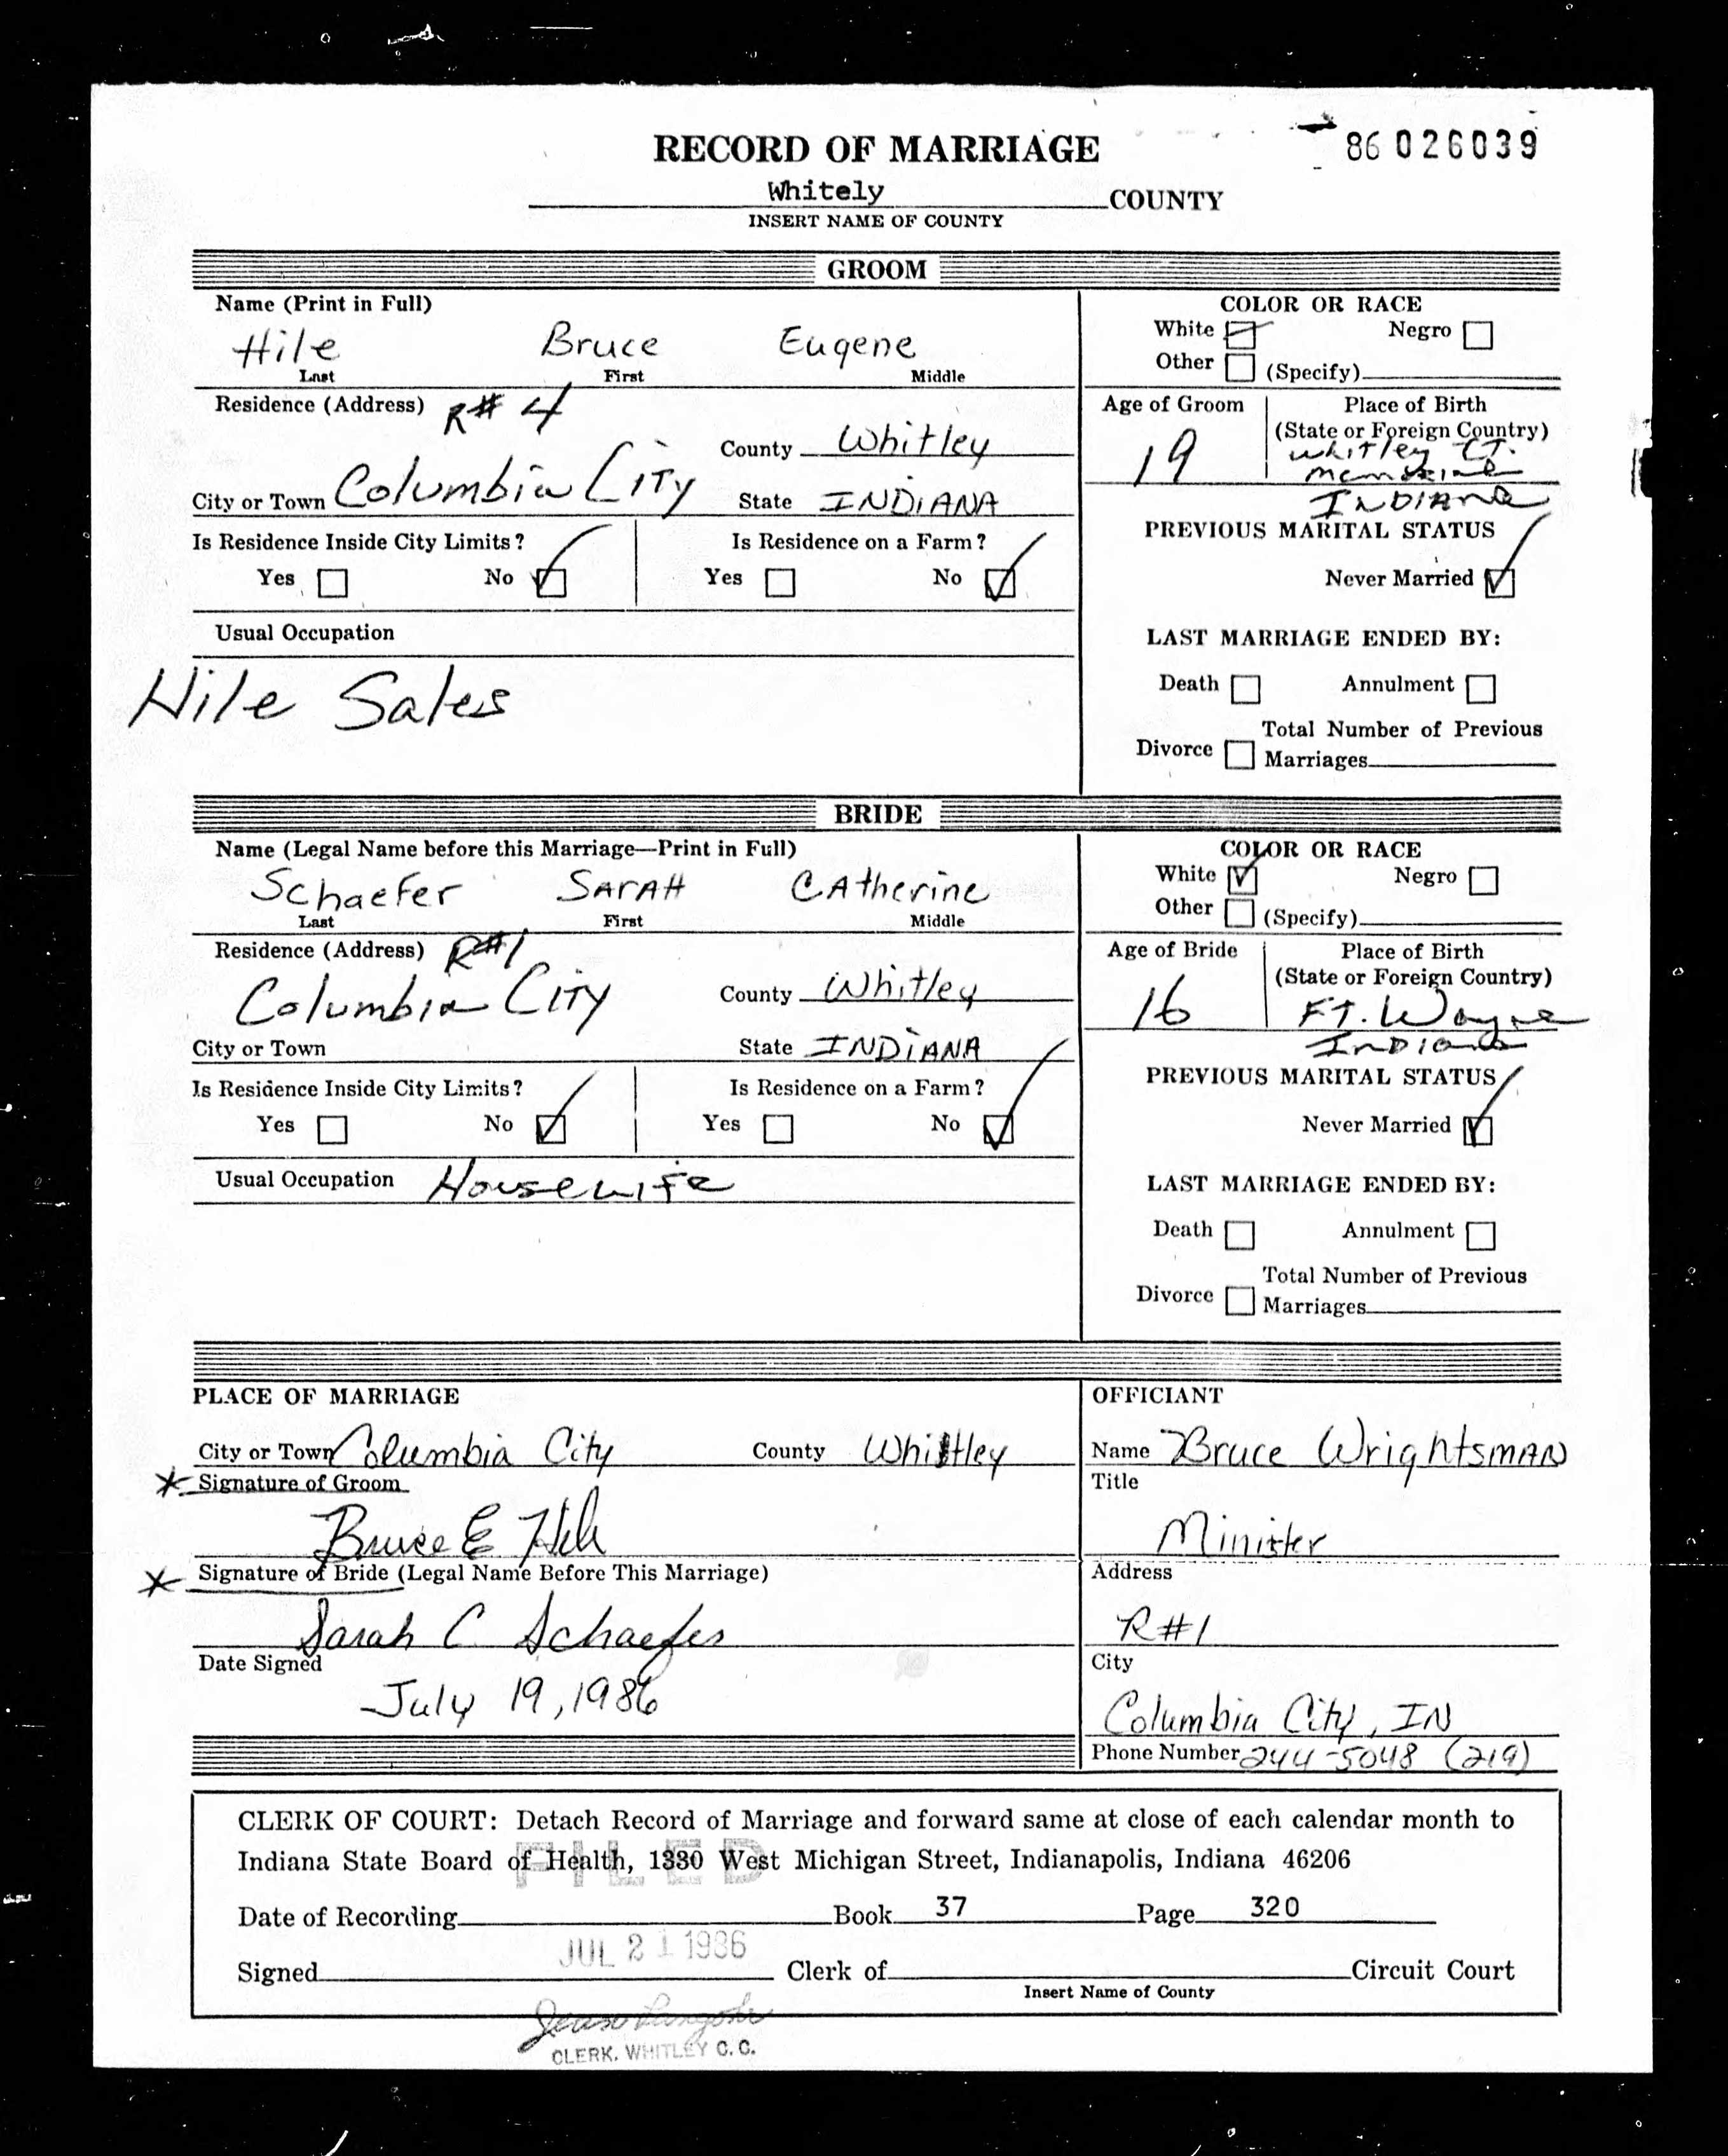 RECORD OF MARRIAGE
86 026039
Whitely COUNTY
INSERT NAME OF COUNTY
GROOM
Name (Print in Full)
Hile Bruce Eugene
Last First Middle
COLOR OR RACE
White Negro
Other (Specify)
Residence (Address) R# 4
County Whitley
City or Town Columbia City State INDIANA
Age of Groom
19
Place of Birth
(State or Foreign Country)
Whitley CT.
INDIANA
Is Residence Inside City Limits?
Yes No
Is Residence on a Farm?
Yes No
PREVIOUS MARITAL STATUS
Never Married
Usual Occupation
Hile Sales
LAST MARRIAGE ENDED BY:
Death Annulment
Total Number of Previous
Divorce Marriages
BRIDE
Name (Legal Name before this Marriage—Print in Full)
Schaefer SARAH CAtherine
Last First Middle
COLOR OR RACE
White Negro
Other (Specify)
Residence (Address) R#1
Columbia City County Whitley
City or Town State INDIANA
Age of Bride
16
Place of Birth
(State or Foreign Country)
FT. Wayne
Indiana
Is Residence Inside City Limits?
Yes No
Is Residence on a Farm?
Yes No
PREVIOUS MARITAL STATUS
Never Married
Usual Occupation Housewife
LAST MARRIAGE ENDED BY:
Death Annulment
Total Number of Previous
Divorce Marriages
PLACE OF MARRIAGE
City or Town Columbia City County Whitley
* Signature of Groom
Bruce E Hile
* Signature of Bride (Legal Name Before This Marriage)
Sarah C. Schaefer
Date Signed
July 19, 1986
OFFICIANT
Name Bruce Wrightsman
Title
Minister
Address
R#1
City
Columbia City, IN
Phone Number 244-5048 (219)
CLERK OF COURT: Detach Record of Marriage and forward same at close of each calendar month to
Indiana State Board of Health, 1330 West Michigan Street, Indianapolis, Indiana 46206
FILED
Date of Recording Book 37 Page 320
JUL 21 1986
Signed Clerk of Circuit Court
Insert Name of County
CLERK. WHITLEY C. C.